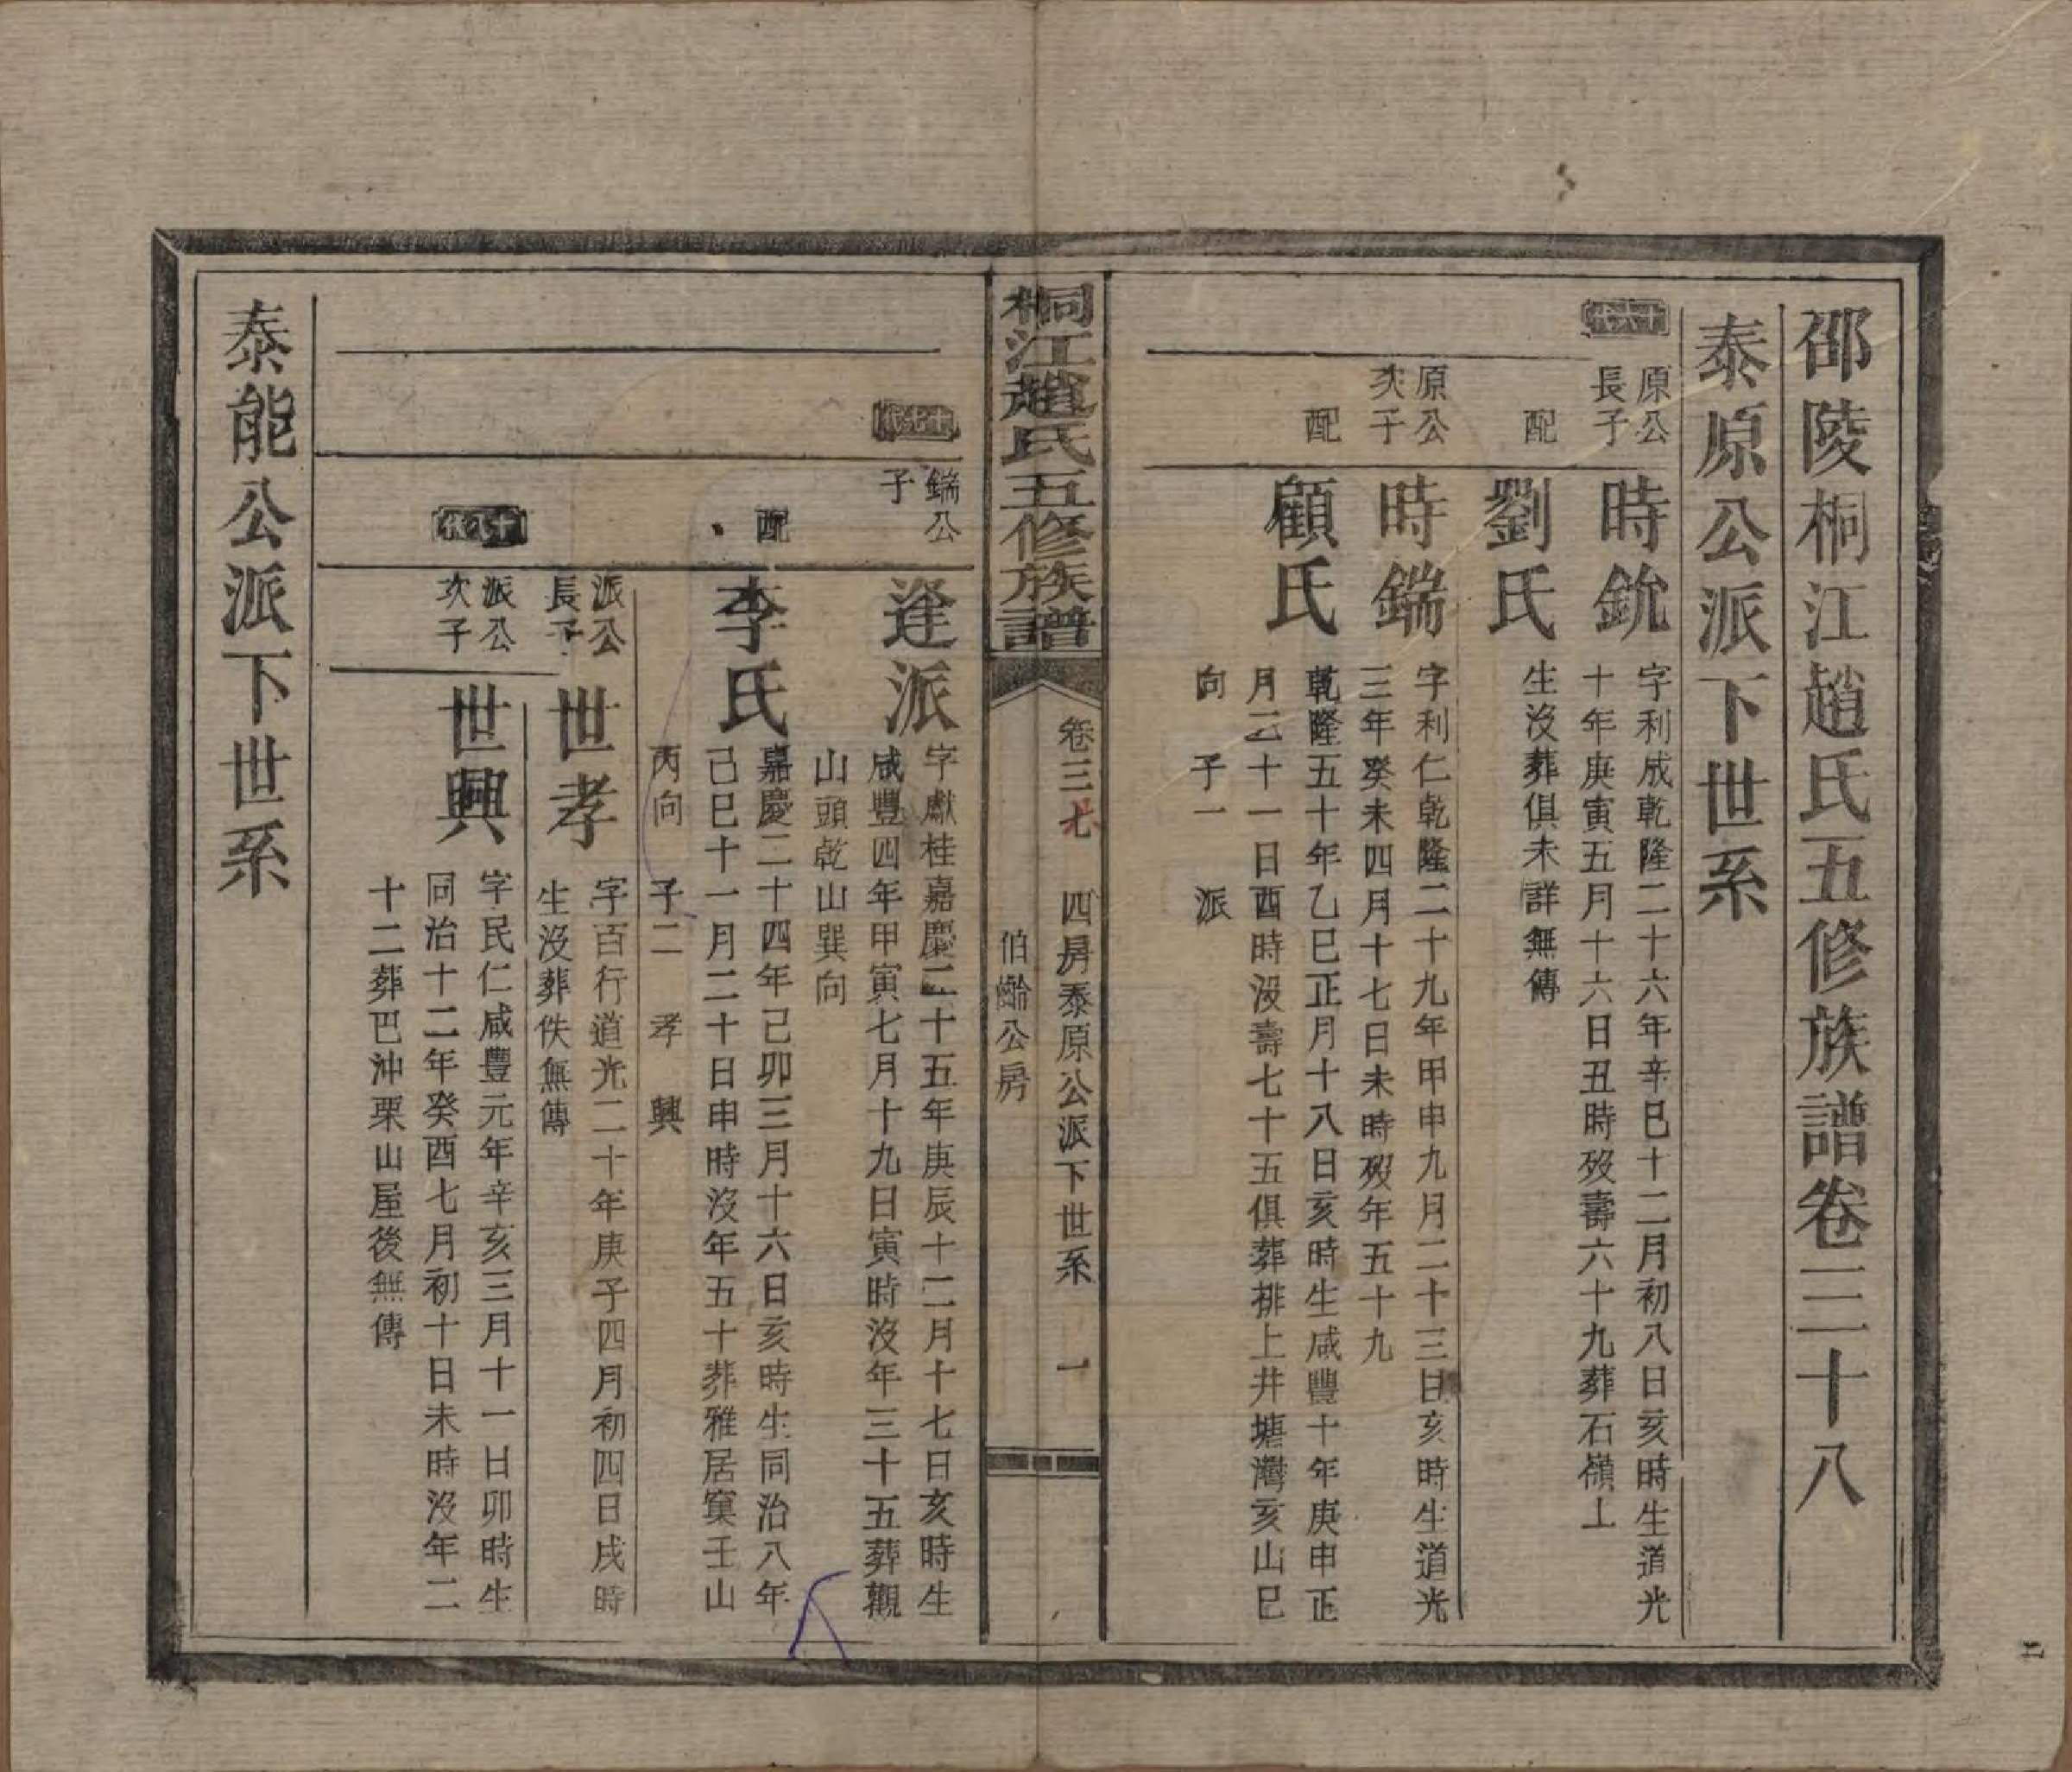 邵陵桐江趙氏五修族譜卷三十八
泰原公派下世系
十六代
原公
長子
時銃
字利成乾隆二十六年辛巳十二月初八日亥時生道光
十年庚寅五月十六日丑時歿壽六十九葬石嶺上
配
劉氏
生沒葬俱未詳無傳
原公
次子
時鍴
字利仁乾隆二十九年甲申九月二十三日亥時生道光
三年癸未四月十七日未時歿年五十九
配
顧氏
乾隆五十年乙巳正月十八日亥時生咸豐十年庚申正
月二十一日酉時沒壽七十五俱葬排上井塘灣亥山巳
向 子一 派
桐江趙氏五修族譜
卷三七 四房泰原公派下世系 一
伯齡公房
十七代
鍴公
子
逢派
字獻桂嘉慶二十五年庚辰十二月十七日亥時生
咸豐四年甲寅七月十九日寅時沒年三十五葬觀
山頭乾山巽向
配
李氏
嘉慶二十四年己卯三月十六日亥時生同治八年
己巳十一月二十日申時沒年五十葬雅居窠壬山
丙向 子二 孝 興
十八代
派公
長子
世孝
字百行道光二十年庚子四月初四日戌時
生沒葬佚無傳
派公
次子
世興
字民仁咸豐元年辛亥三月十一日卯時生
同治十二年癸酉七月初十日未時沒年二
十二葬巴沖栗山屋後無傳
泰能公派下世系